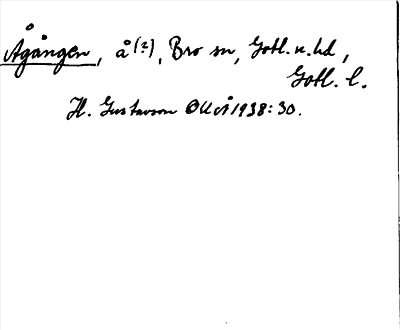 Ågången, å (?), Bro sn, Gotl. n. hd,
Gotl. l.
H. Gustavson OUÅ 1938: 30.